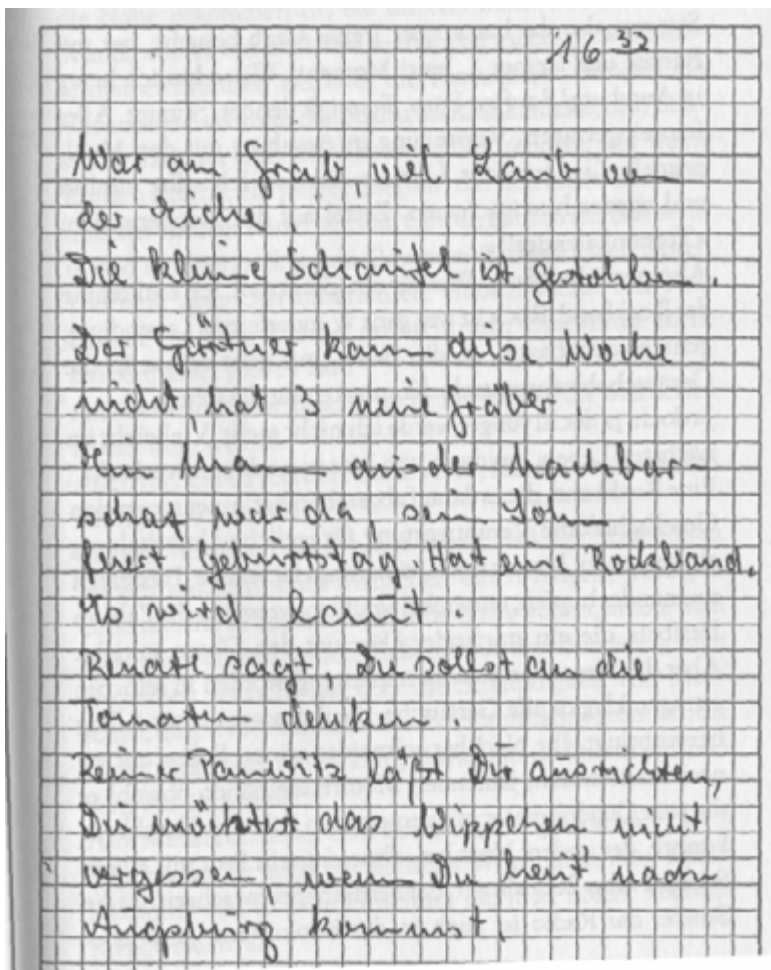 16 32
War am Grab, viel Laub von
der Eiche.
Die kleine Schaufel ist gestohlen.
Der Gärtner kann diese Woche
nicht, hat 3 neue Gräber.
Ein Mann aus der Nachbar-
schaf war da, sein Sohn
feiert Geburtstag. Hat eine Rockband.
Es wird laut.
Renate sagt, Du sollst an die
Tomaten denken.
Reiner Panwitz läßt Dir ausrichten,
Du möchtest das Wippchen nicht
vergessen, wenn Du heut' nach
Augsburg kommst.